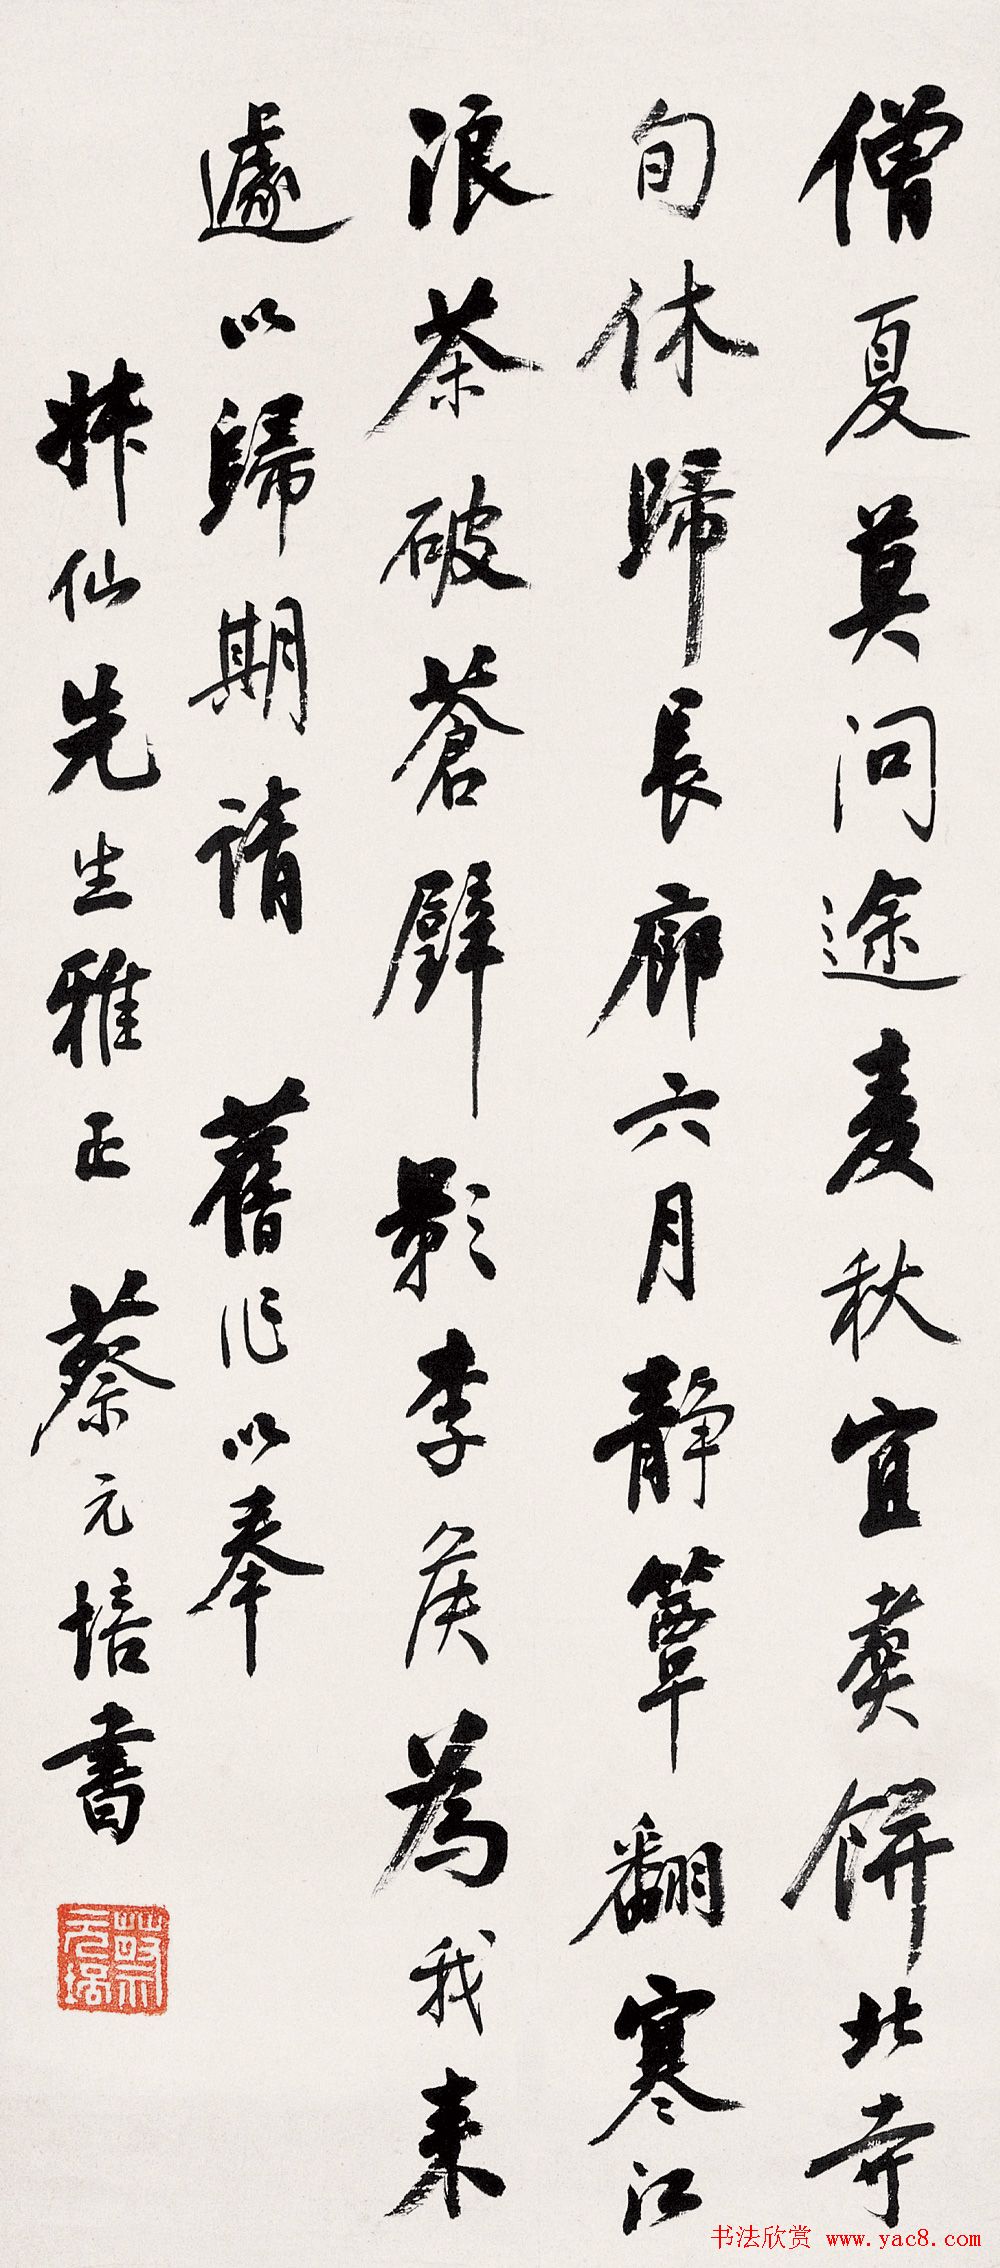 僧夏莫問途麦秋宜煑餅北寺
旬休歸長廊六月静簟翻寒江
浪茶破蒼壁影李侯為我来
遽以歸期請 舊作以奉
仙先生雅正 蔡元培書
蔡元培
书法欣赏 www.yac8.com